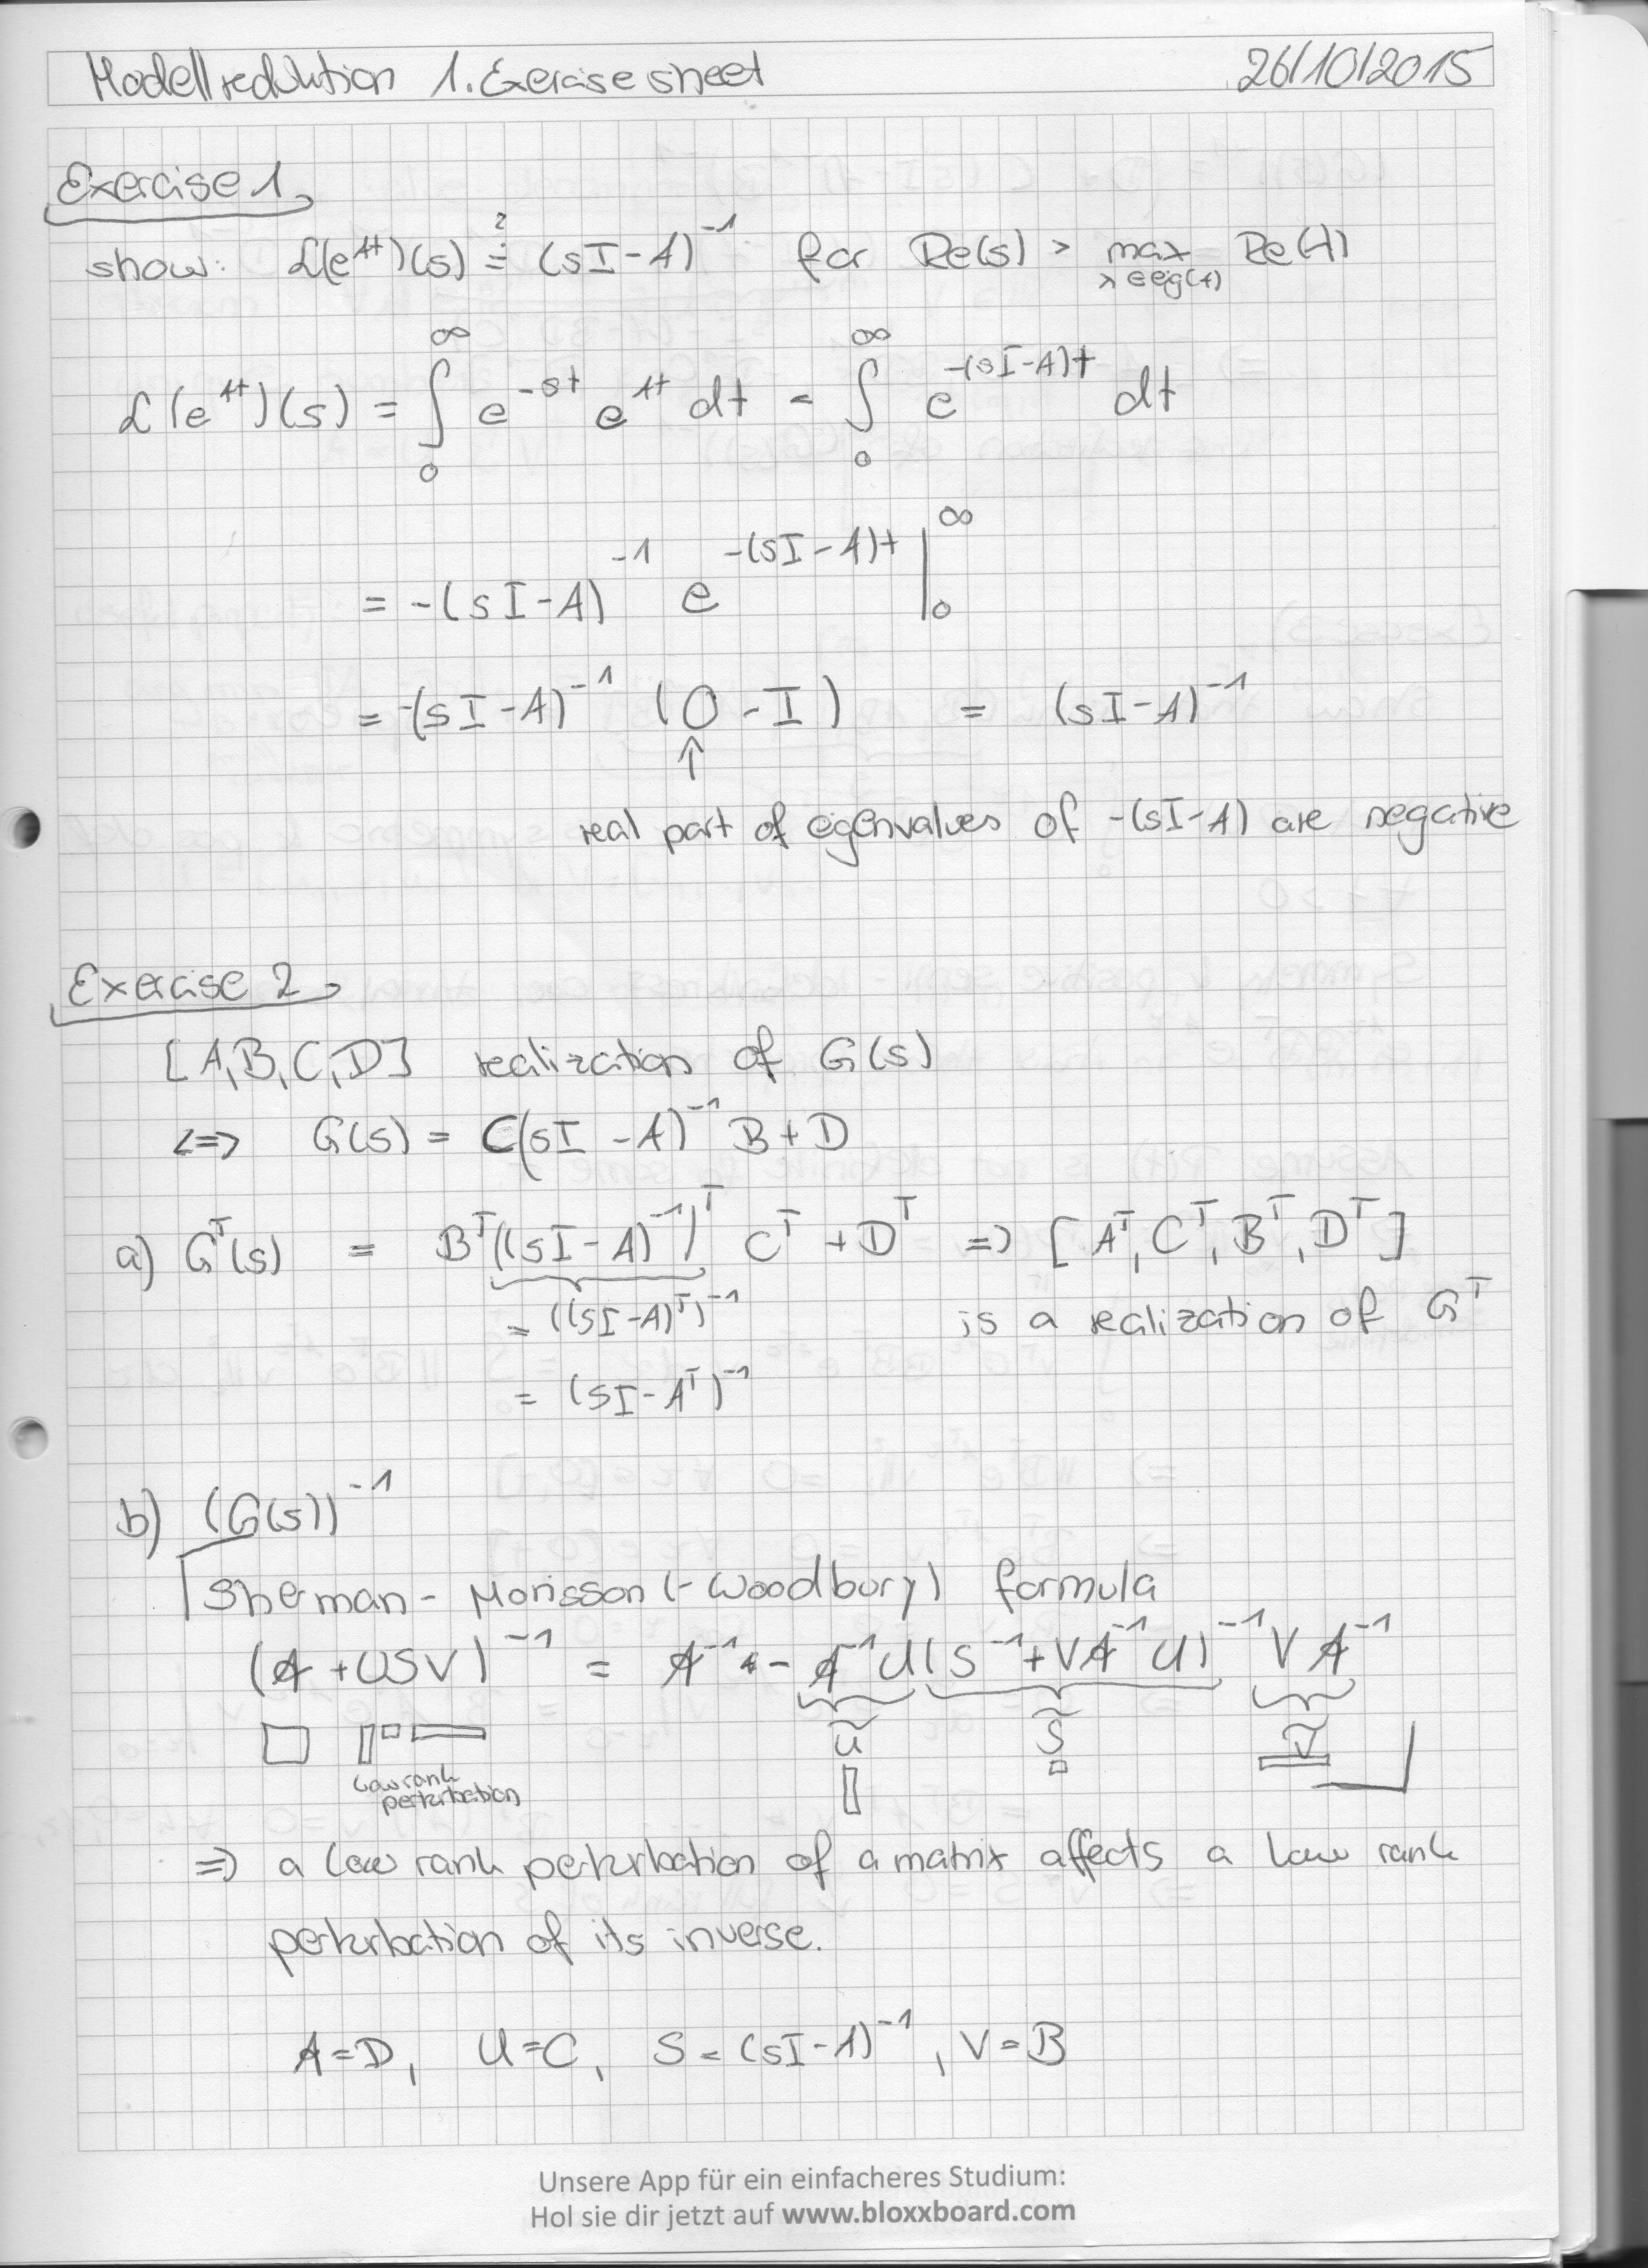 Modellreduktion 1. Exercise sheet 26/10/2015
Exercise 1
show: ℒ(e^{At})(s) ≟ (sI-A)^{-1} for Re(s) > max_{λ∈eig(A)} Re(λ)
ℒ(e^{At})(s) = ∫_0^∞ e^{-st} e^{At} dt = ∫_0^∞ e^{-(sI-A)t} dt
= -(sI-A)^{-1} e^{-(sI-A)t} |_0^∞
= -(sI-A)^{-1} (0 - I) = (sI-A)^{-1}
↑
real part of eigenvalues of -(sI-A) are negative
Exercise 2
[A,B,C,D] realization of G(s)
<=> G(s) = C(sI-A)^{-1} B + D
a) G^T(s) = B^T((sI-A)^{-1})^T C^T + D^T => [A^T, C^T, B^T, D^T]
= ((sI-A)^T)^{-1} is a realization of G^T
= (sI-A^T)^{-1}
b) (G(s))^{-1}
Sherman-Morisson(-Woodbury) formula
(A + USV)^{-1} = A^{-1} - A^{-1}U(S^{-1}+VA^{-1}U)^{-1} VA^{-1}
Ũ S̃ Ṽ
low rank
perturbation
=> a low rank perturbation of a matrix affects a low rank
perturbation of its inverse.
A=D, U=C, S=(sI-A)^{-1}, V=B
Unsere App für ein einfacheres Studium:
Hol sie dir jetzt auf www.bloxxboard.com